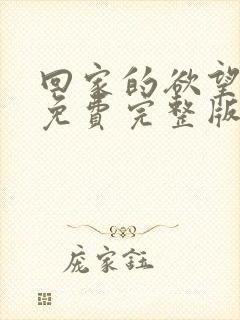 回家的欲望
免费完整版
庞家钰